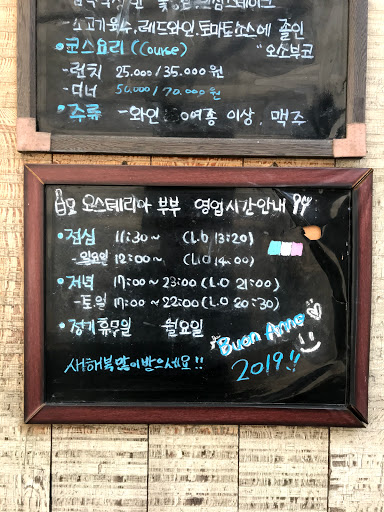 소고기육수, 레드와인, 토마토소스에 졸인
"오소부코
• 코스요리 (Course)
- 런치 25.000/35.000원
- 디너 50.000/70.000원
• 주류 - 와인 이상, 맥주
오스테리아 부부 영업시간안내
• 점심 11:30~ (L.O 13:20)
- 일요일 12:00~ (L.O 14:00)
• 저녁 17:00~23:00 (L.O 21:00)
- 토.일 17:00~22:00 (L.O 20:30)
• 정기휴무일 월요일
Buon Anno
2019!!
새해복많이받으세요!!